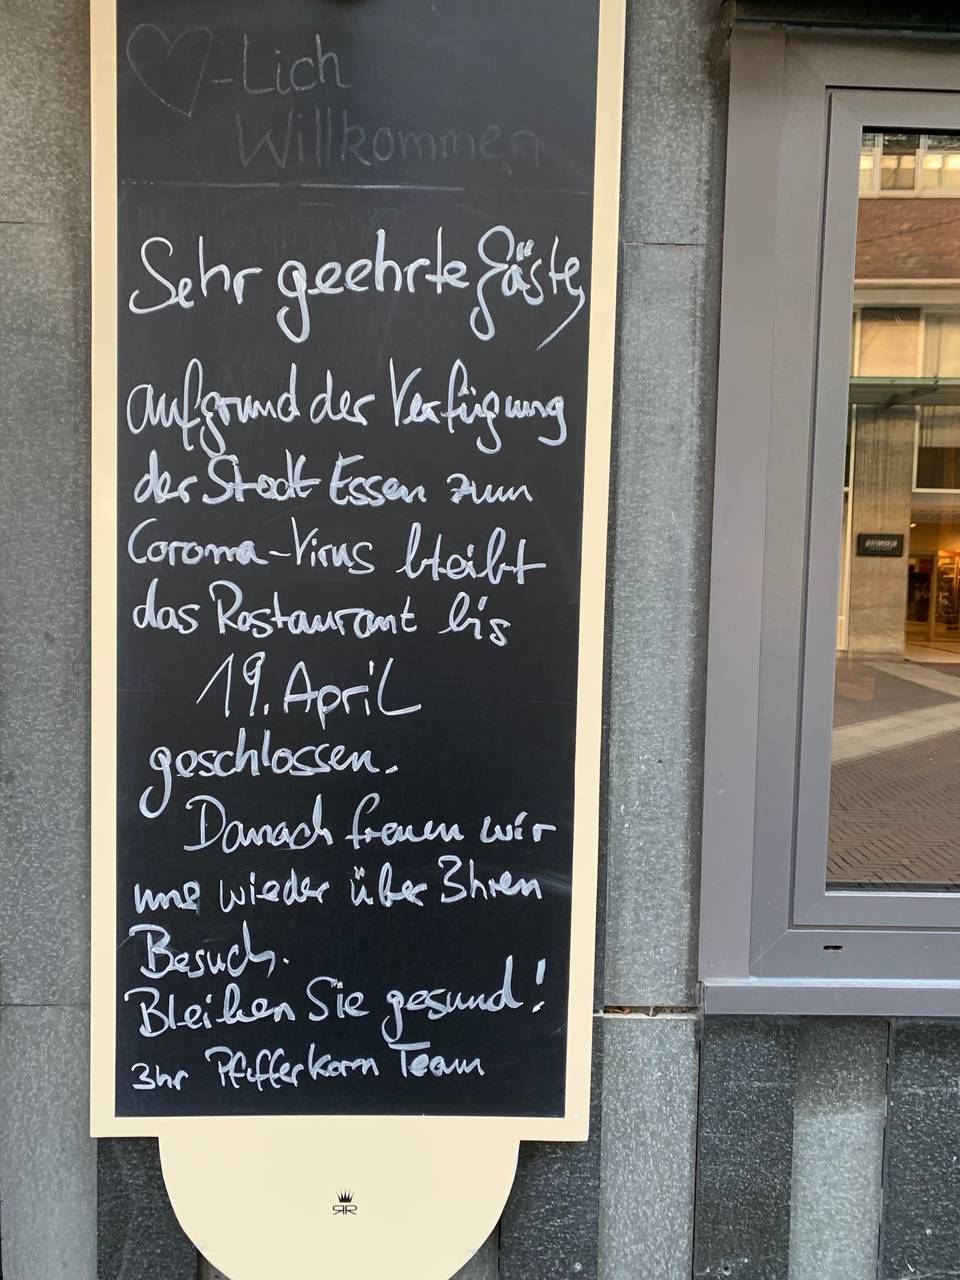 ♡-Lich
Willkommen
Sehr geehrte Gäste,
aufgrund der Verfügung
der Stadt Essen zum
Corona-Virus bleibt
das Restaurant bis
19. April
geschlossen.
Danach freuen wir
uns wieder über Ihren
Besuch.
Bleiben Sie gesund!
Ihr Pfefferkorn Team